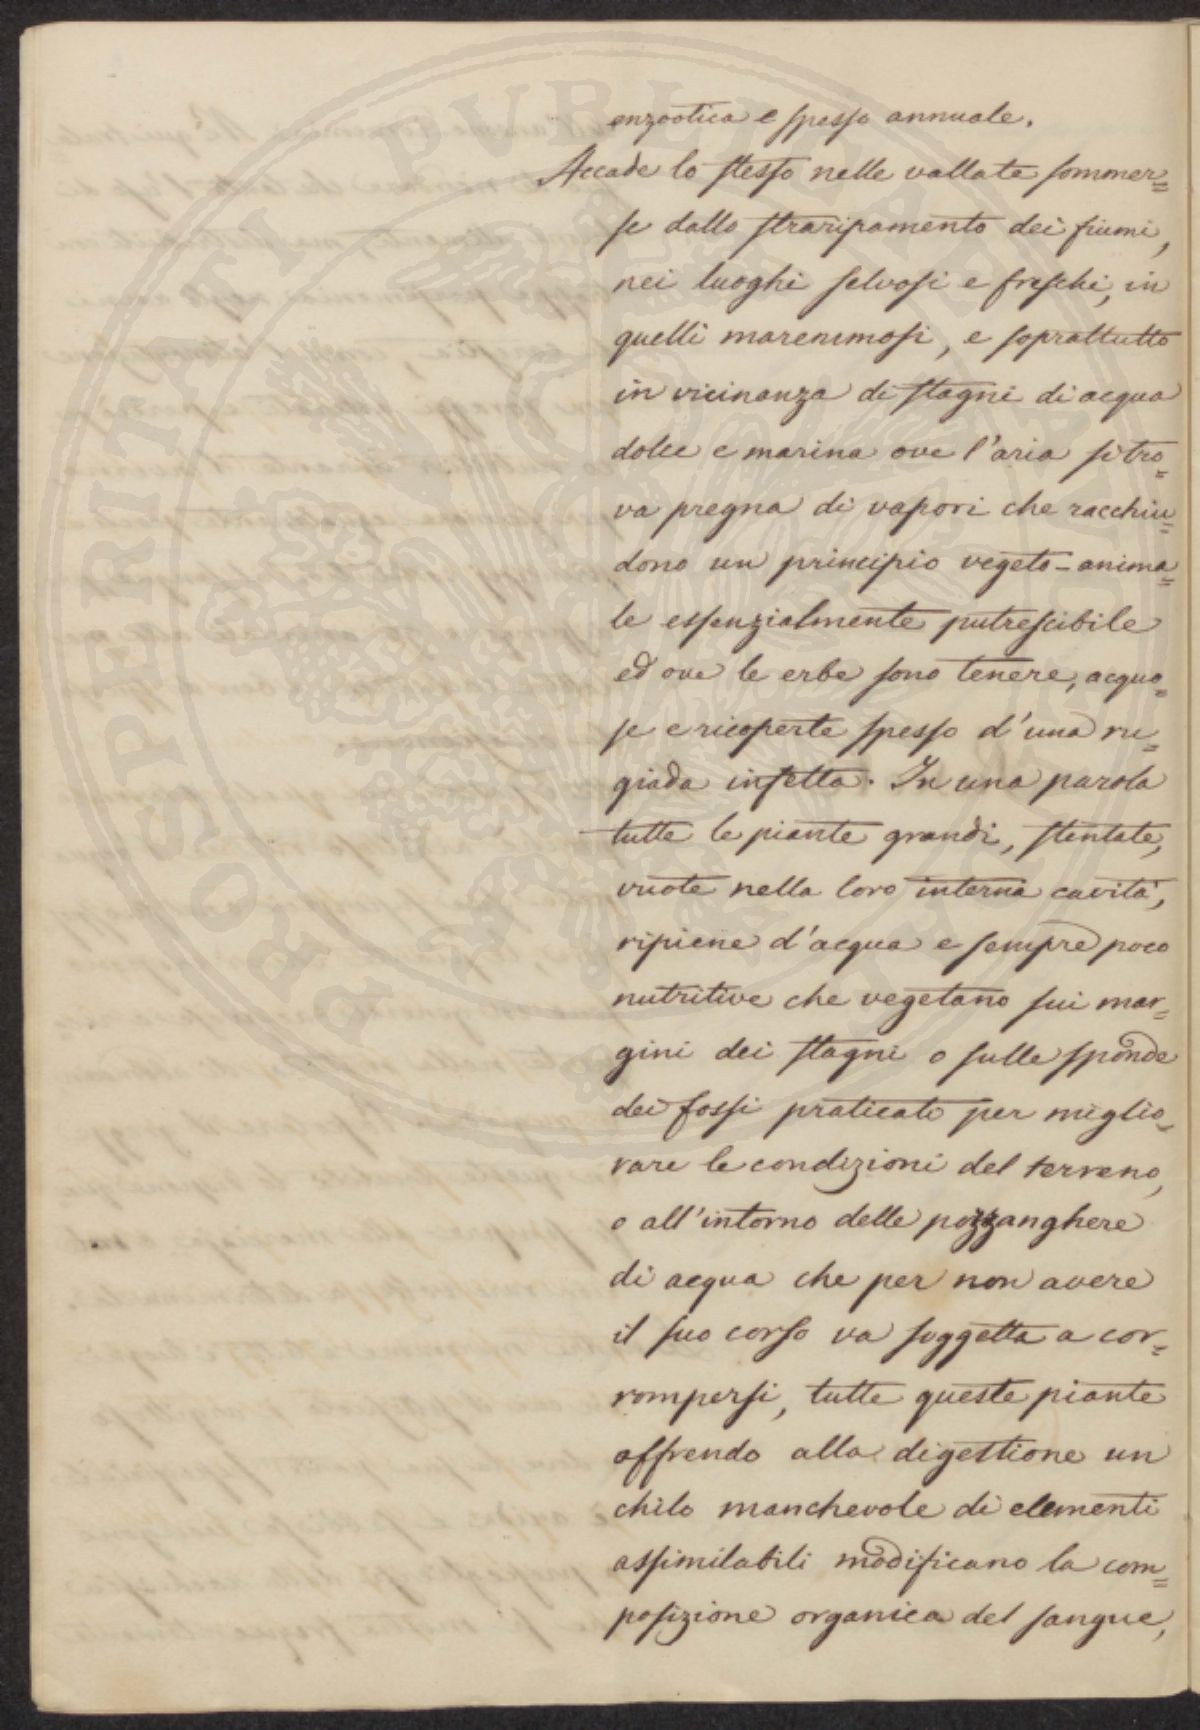 enzootica e spesso annuale.
Accade lo stesso nelle vallate sommer=
se dallo straripamento dei fiumi,
nei luoghi selvosi e freschi, in
quelli maremmosi, e soprattutto
in vicinanza di stagni di acqua
dolce e marina ove l'aria si tro=
va pregna di vapori che racchiu=
dono un principio vegeto-anima=
le essenzialmente putrescibile
ed ove le erbe sono tenere, acquo=
se e ricoperte spesso d'una ru=
giada infetta. In una parola
tutte le piante grandi, stentate,
vuote nella loro interna cavità,
ripiene d'acqua e sempre poco
nutritive che vegetano sui mar=
gini dei stagni o sulle sponde
dei fossi praticati per miglio=
rare le condizioni del terreno,
o all'intorno delle pozzanghere
di acqua che per non avere
il suo corso va soggetta a cor=
rompersi, tutte queste piante
offrendo alla digestione un
chilo manchevole di elementi
assimilabili modificano la com=
posizione organica del sangue,
PROSPERITATI PVBLICAE